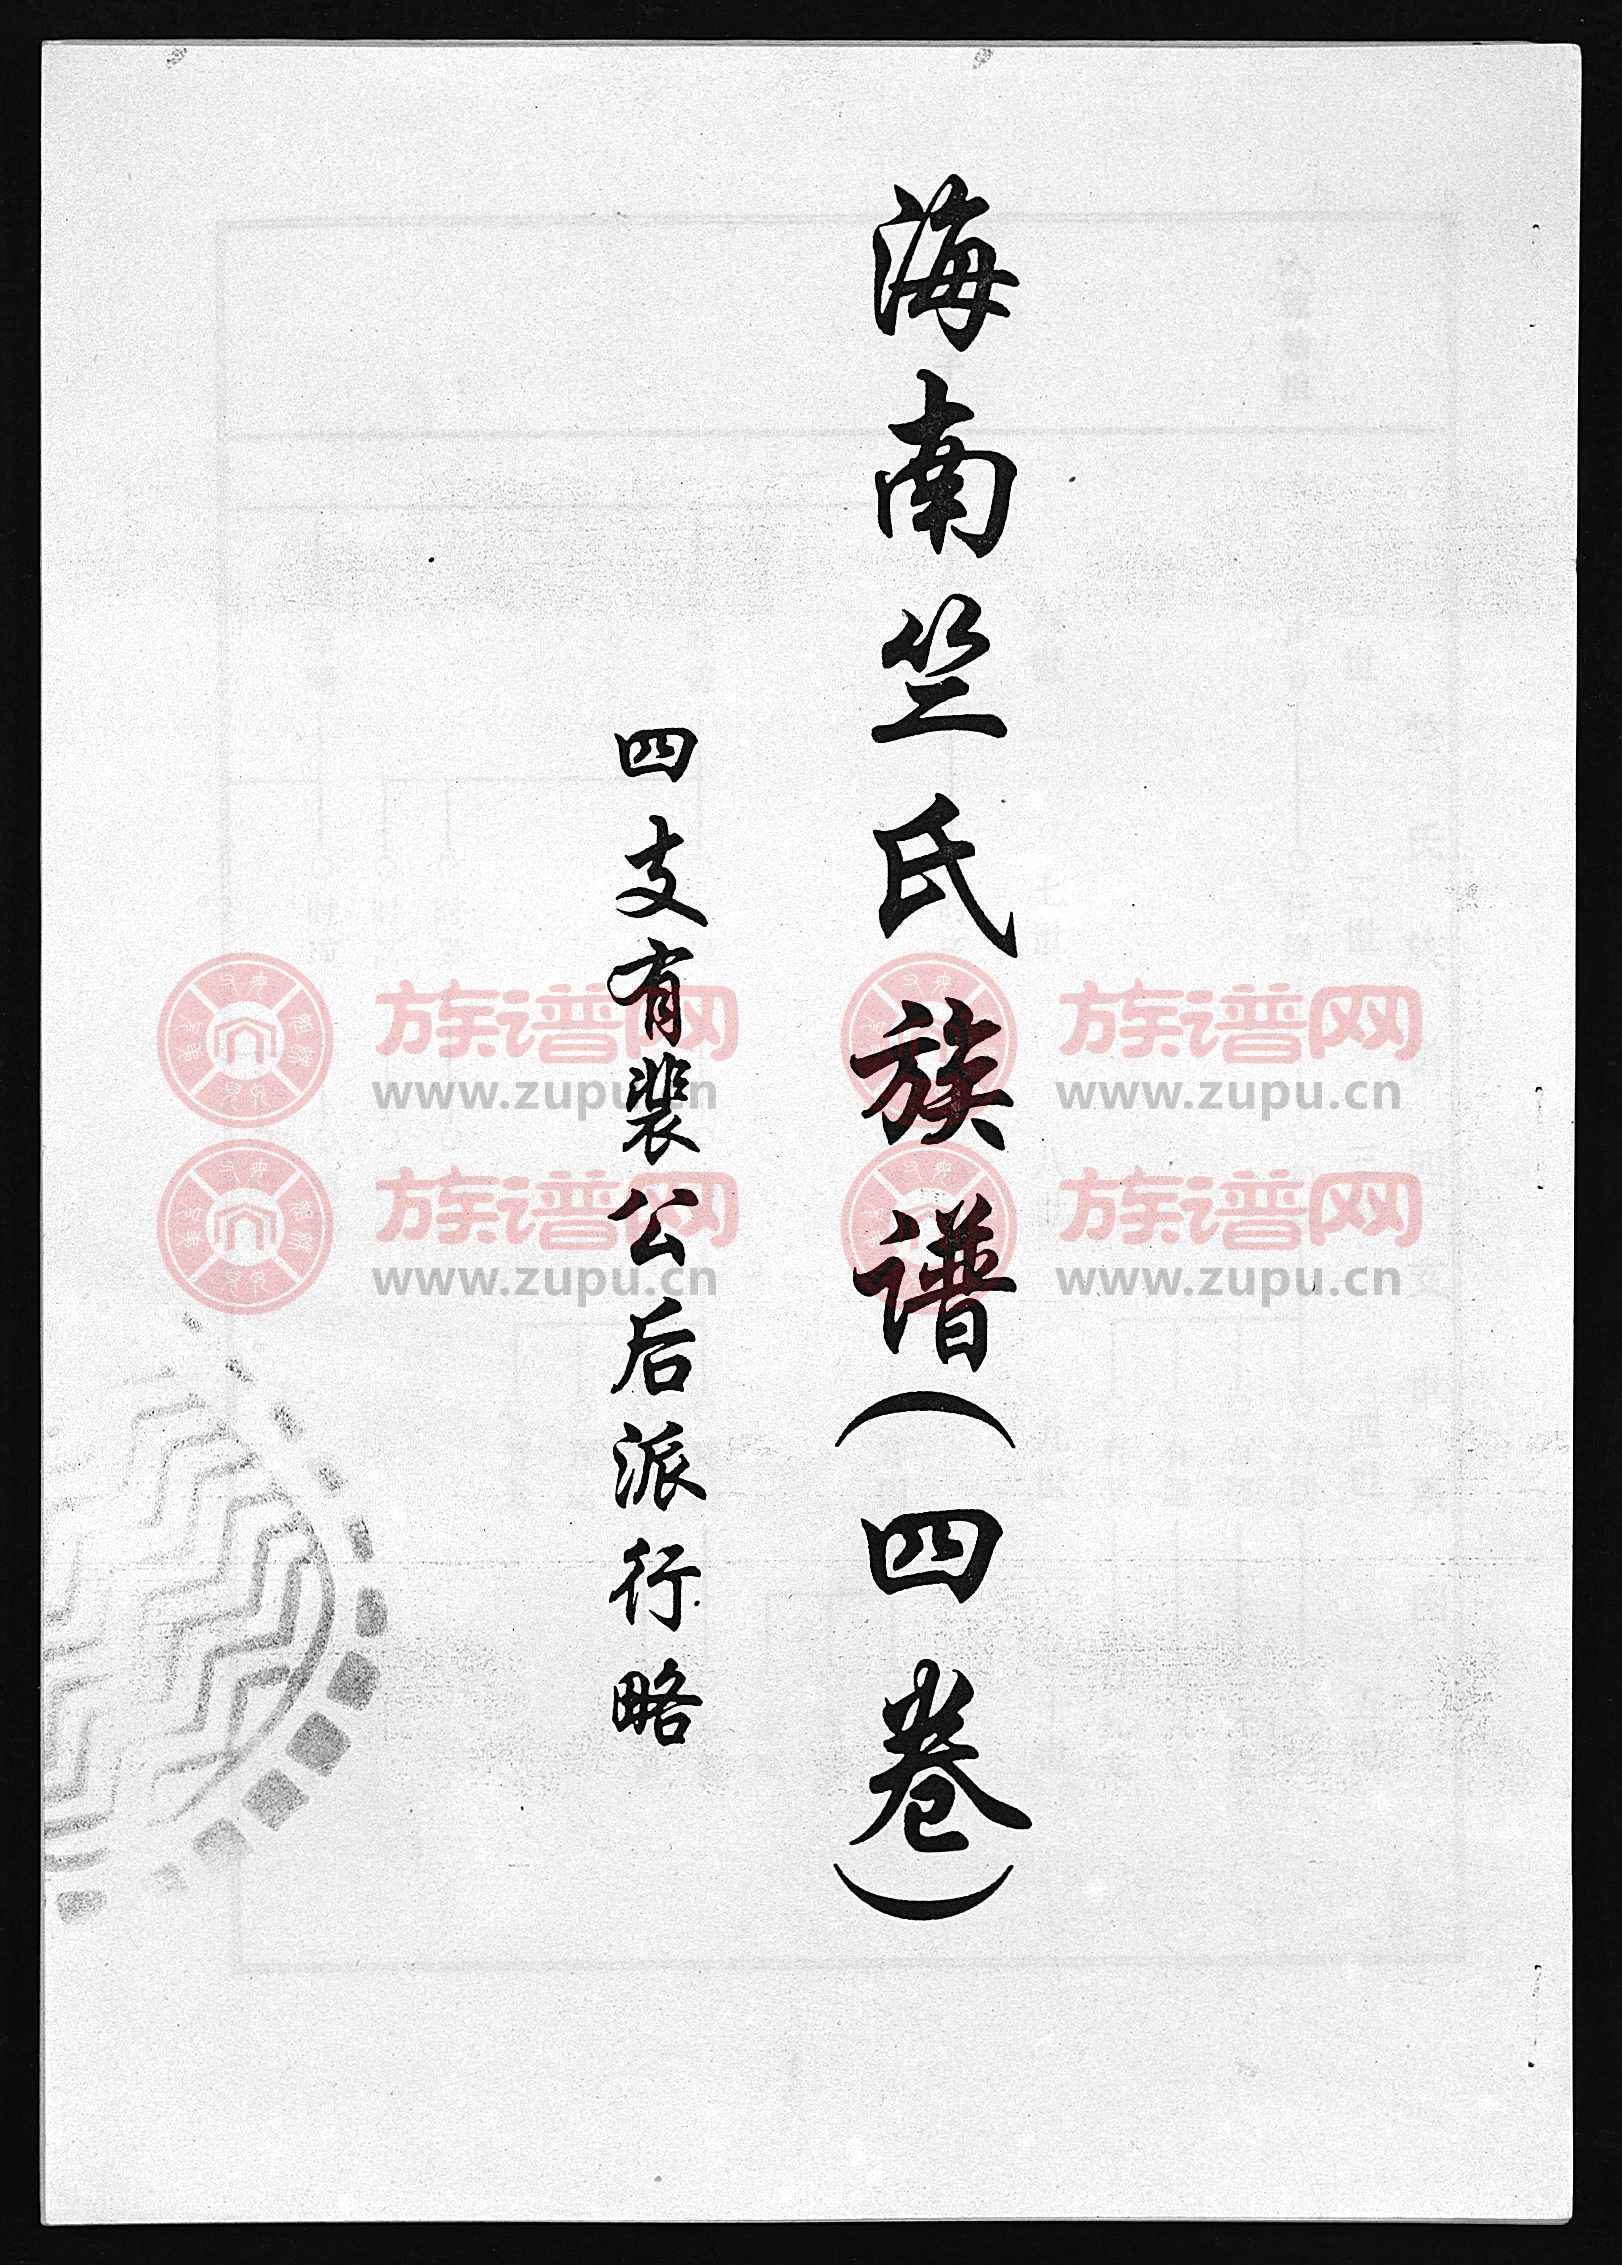 海南竺氏族谱(四卷)
四支有裴公后派行略
族谱网 族谱网
www.zupu.cn www.zupu.cn
族谱网 族谱网
www.zupu.cn www.zupu.cn